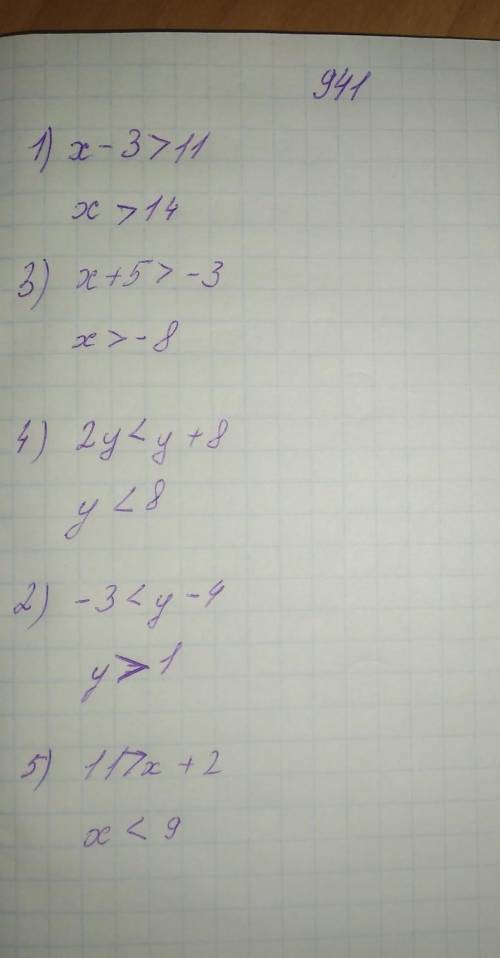 941
1) x - 3 > 11
x > 14
3) x + 5 > -3
x > -8
4) 2y < y + 8
y < 8
2) -3 < y - 4
y > 1
5) 11 > x + 2
x < 9